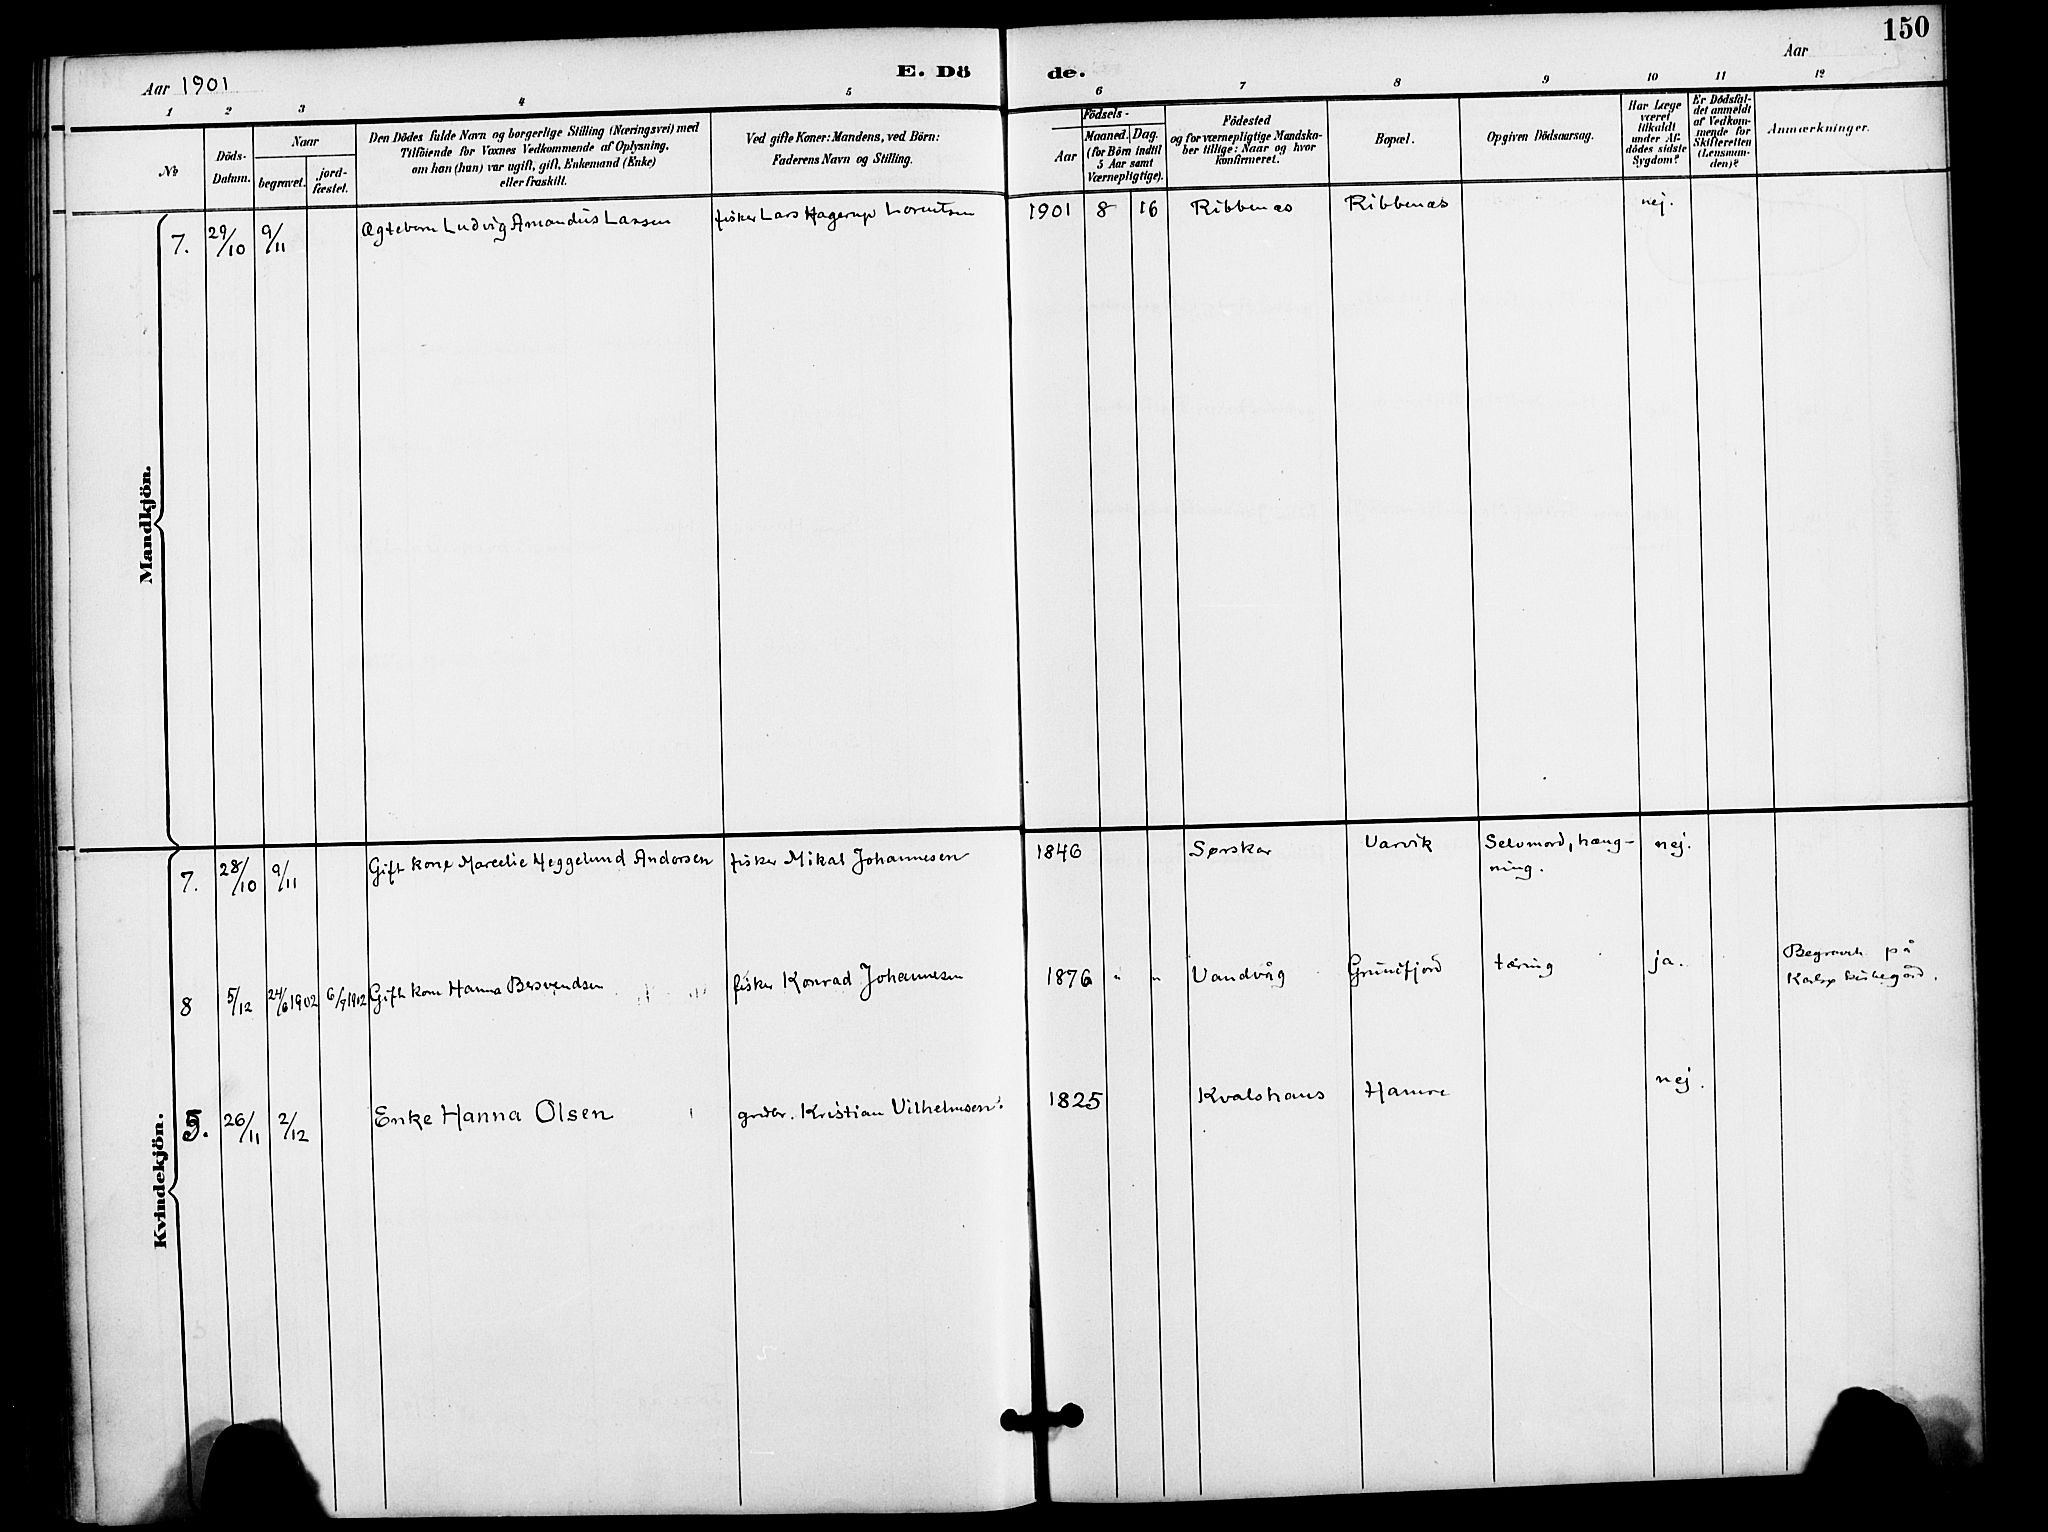 150
Aar 1901
E. Dö de.
Aar
1 2 3 4 5 6 7 8 9 10 11 12
No
Döds-
Datum.
Naar
begravet.
jord-
fæstet.
Den Dödes fulde Navn og borgerlige Stilling (Næringsvei) med
Tilföiende for Voxnes Vedkommende af Oplysning,
om han (hun) var ugift, gift, Enkemand (Enke)
eller fraskilt.
Ved gifte Koner: Mandens, ved Börn:
Faderens Navn og Stilling.
Födsels-
Aar
Maaned. Dag.
(for Börn indtil
5 Aar samt
Værnepligtige).
Födested
og for værnepligtige Mandska-
ber tillige: Naar og hvor
konfirmeret.
Bopæl.
Opgiven Dödsaarsag.
Har Læge
været
tilkaldt
under Af-
dödes sidste
Sygdom?
Er Dödsfal-
det anmeldt
af Vedkom-
mende for
Skifteretten
(Lensman-
den)?
Anmærkninger.
Mandkjön.
7. 29/10 9/11 Ægtebarn Ludvig Amandus Larsen fisker Lars Hagerup Lorentsen 1901 8 16 Ribbenæs Ribbenæs nej.
Kvindekjön.
7. 28/10 9/11 Gift kone Marcelie Heggelund Andersen fisker Mikal Johannesen 1846 Sørskar Varvik Selvmord, hæng- nej.
ning.
8 5/12 24/6 1902 6/7 1902 Gift kone Hanna Bersvendsen fisker Konrad Johannesen 1876 " " Vandvåg Grunfjord tæring ja. Begravet på
Karlsø kirkegård.
26/11 2/12 Enke Hanna Olsen grdbr. Kristian Vilhelmsen. 1825 Kvalshaus Hamre nej.